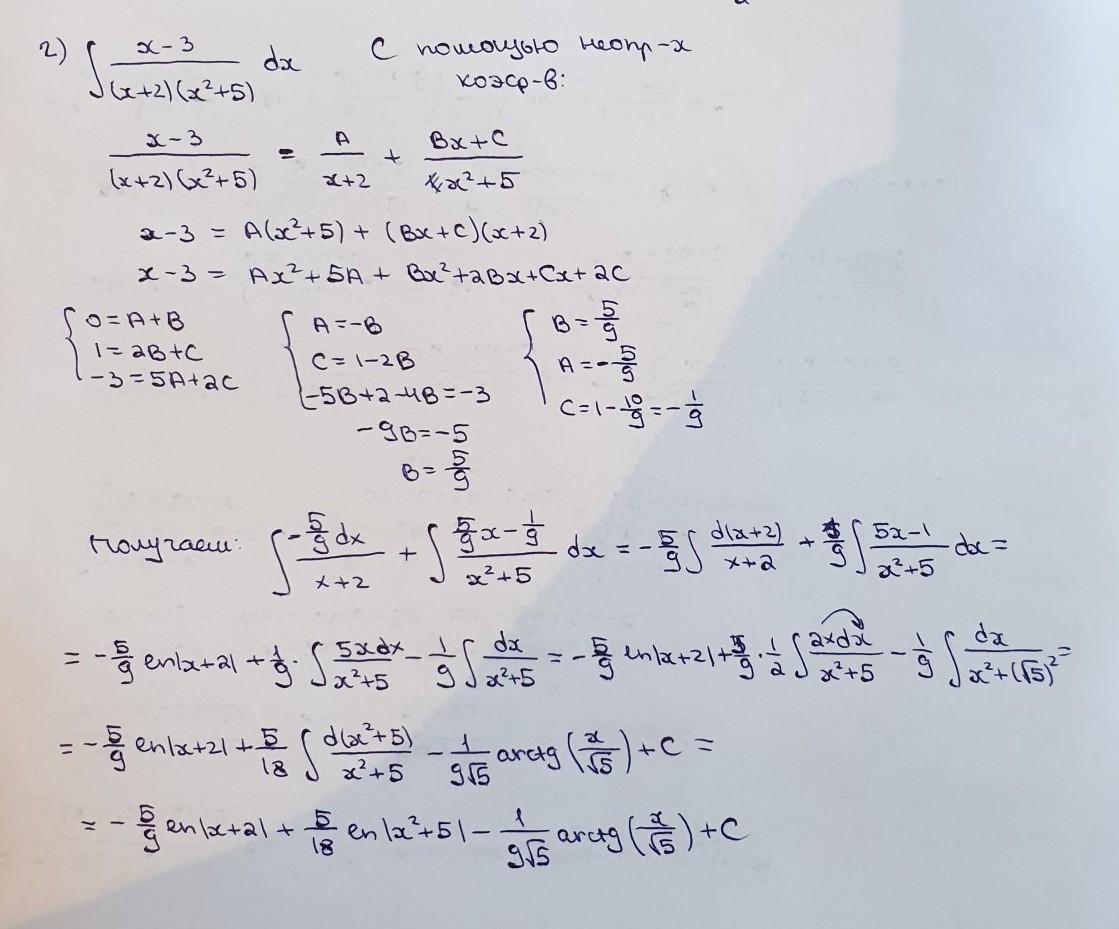 2) ∫ (x-3)/((x+2)(x²+5)) dx С помощью неопр-х
коэф-в:
(x-3)/((x+2)(x²+5)) = A/(x+2) + (Bx+C)/(x²+5)
x-3 = A(x²+5) + (Bx+C)(x+2)
x-3 = Ax²+5A + Bx²+2Bx+Cx+2C
{ 0=A+B { A=-B { B=5/9
1=2B+C C=1-2B A=-5/9
-3=5A+2C -5B+2-4B=-3 C=1-10/9=-1/9
-9B=-5
B=5/9
Получаем: ∫ (-5/9 dx)/(x+2) + ∫ (5/9 x - 1/9)/(x²+5) dx = -5/9 ∫ d(x+2)/(x+2) + 1/9 ∫ (5x-1)/(x²+5) dx =
= -5/9 ln|x+2| + 1/9 · ∫ 5xdx/(x²+5) - 1/9 ∫ dx/(x²+5) = -5/9 ln|x+2| + 5/9 · 1/2 ∫ 2xdx/(x²+5) - 1/9 ∫ dx/(x²+(√5)²) =
= -5/9 ln|x+2| + 5/18 ∫ d(x²+5)/(x²+5) - 1/(9√5) arctg (x/√5) + C =
= -5/9 ln|x+2| + 5/18 ln|x²+5| - 1/(9√5) arctg (x/√5) + C